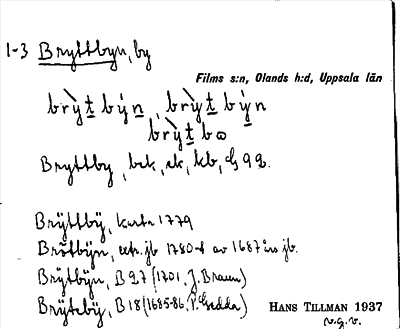 1-3 Bryttbyn, by
Films s:n, Olands h:d, Uppsala län
brỳt býn, brỳt býn
brỳt bω
Bryttby, bek, ek, kb, G 92.
Brÿttbÿ, karta 1779
Brötbÿn, extr. jb 1780-t av 1687 års jb.
Brÿtbÿn, B27 (1701, J. Braun)
Brÿtebÿ, B18 (1685-86, P. Gedda)
HANS TILLMAN 1937